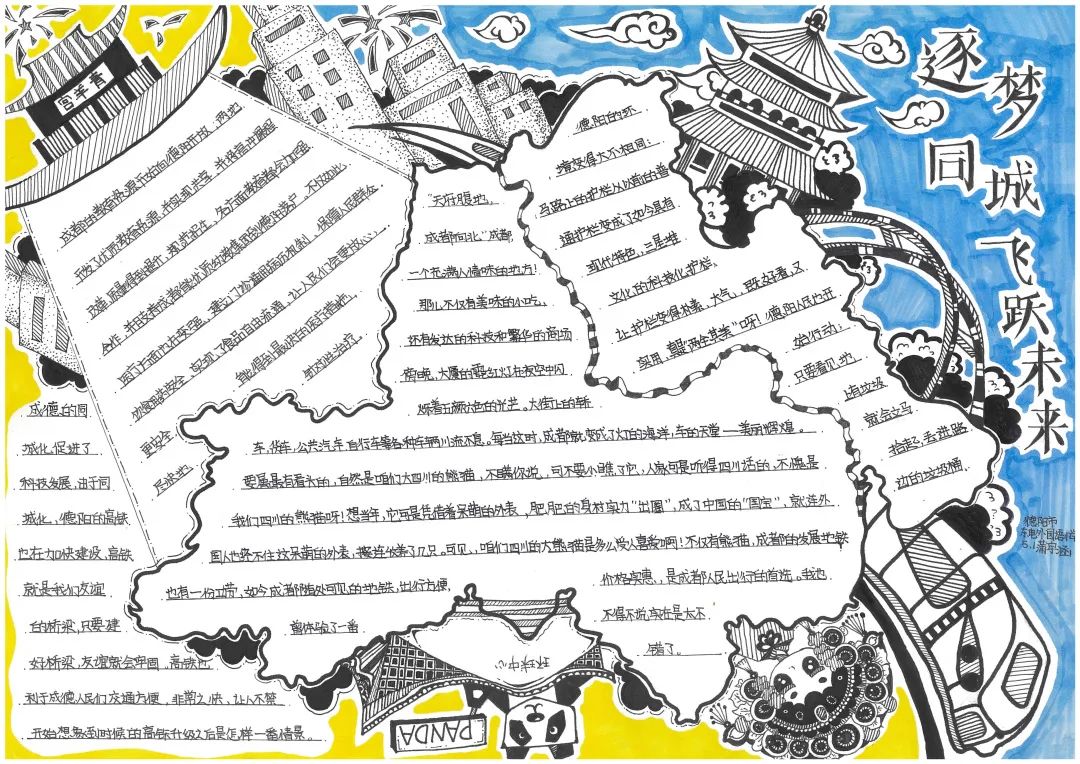 逐梦
同城
飞跃未来
青羊宫
成都的教育资源平好的向德阳开放，两地
开放了优质教育资源，并实现共享
质量得到提升，规范招生，各方面教育都会加强
合作
医疗方面也在变强
让人民们会更放心，
更安全
及时进行治疗。
"天府腹地。
成都向北"成都
一个充满人情味的地方！
那儿不仅有美味的小吃，
还有发达的科技和繁华的商场
夜晚，大厦的霓虹灯在夜空中闪
烁着五颜六色的光芒。大街上的轿
车，货车，公共汽车，自行车等各种车辆川流不息。每当这时，成都就变成了灯的海洋，车的天堂——美丽辉煌。
要属最有看头的，自然是咱们大四川的熊猫，不瞒你说，可不要小瞧了它，人家可是听得四川话的，不愧是
我们四川的熊猫呀！想当年，它可是凭借着呆萌的外表，肥肥的身材实力"出圈"，成了中国的"国宝"，就连外
国人也终不住这呆萌的外表，接连收养了几只。可见，咱们四川的大熊猫是多么受人喜爱啊！不仅有熊猫，成都的发展地铁
也有一份功劳，如今成都随处可见的地铁，出行方便，
价格实惠，是成都人民出行的首选。我也
曾体验了一番
不得不说，实在是太不
错了。
德阳的环
境变得大不相同：
马路上的护栏从以前的普
通护栏变成了如今具有
现代特色，三星堆
文化的科技化护栏，
让护栏变得朴素、大气，既好看，又
实用，真是"两全其美"呀！德阳人民也开
始行动；
只要看见地
上有垃圾
就会立马
拾起，丢进路
边的垃圾桶
成德的同
城化促进了
科技发展，由于同
城化，德阳的高铁
也在加快建设，高铁
就是我们友谊
的桥梁，只要建
好桥梁，友谊就会牢固。高铁也
利于成德人民们交通方便，非常之快，让人不禁
开始想象到时候的高铁升级之后是怎样一番情景。
德阳市
东电外国语小学
PANDA